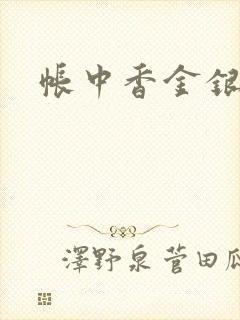 帳中香金銀
澤野泉菅田瓜